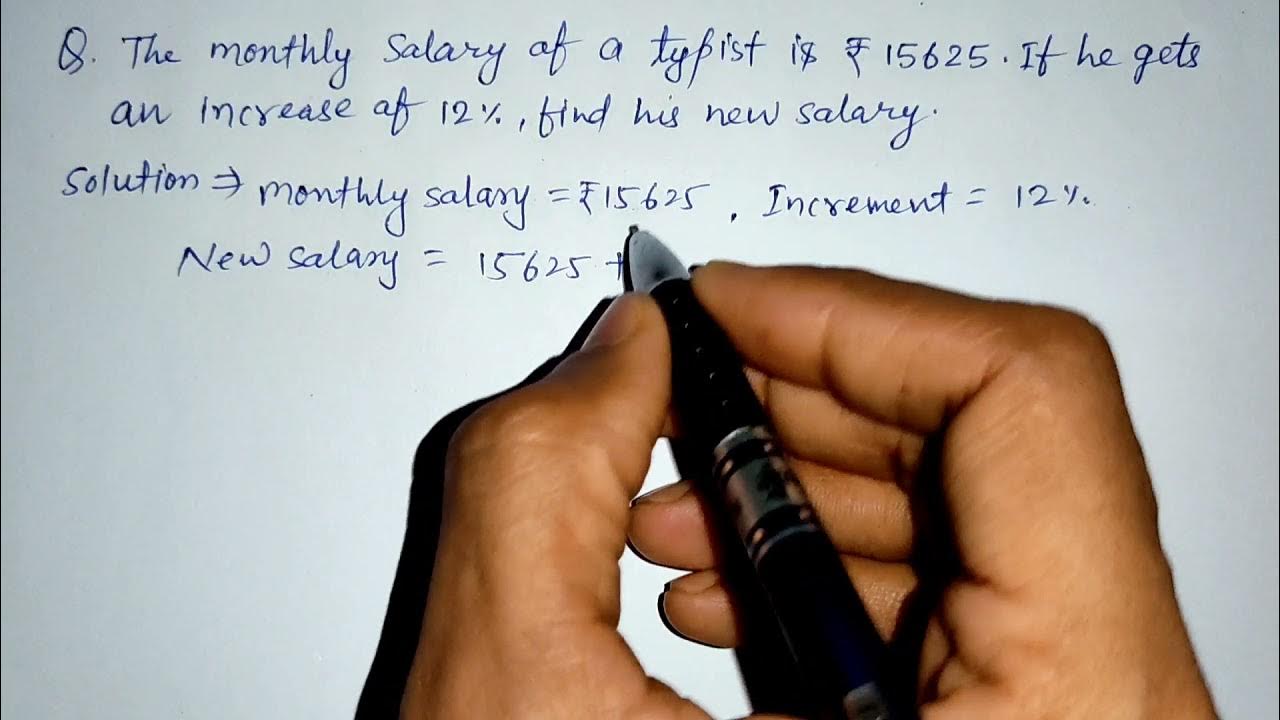 Q. The monthly Salary of a typist is ₹ 15625. If he gets
an increase of 12%, find his new salary.
Solution ⇒ monthly salary = ₹15625, Increment = 12%
New salary = 15625 +